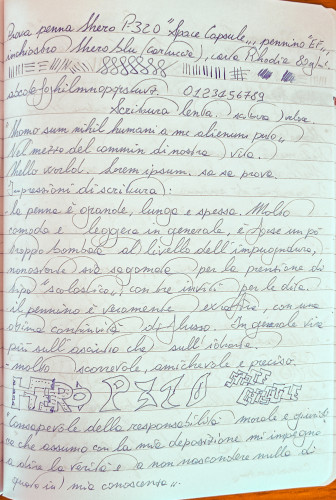 Prova penna Shero P320 "Space Capsule", pennino "EF",
inchiostro Shero blu (cartuccia), carta Rhodia 80g/m²
abcdefghilmnopqrstuvz. 0123456789
Scrittura lenta. veloce.
"Homo sum nihil humani a me alienum puto"
Nel mezzo del cammin di nostra vita.
hello world. Lorem ipsum. sa sa prova.
Impressioni di scrittura:
- la penna è grande, lunga e spessa. Molto
comoda e leggera in generale, è forse un po'
troppo bombata al livello dell'impugnatura,
nonostante sia sagomata per la prensione di
tipo "scolastico", con tre inviti per le dita.
- il pennino è veramente extrafine, con una
ottima continuità di flusso. In generale vira
più sull'asciutto che sull'idratato.
- molto scorrevole, amichevole e preciso.
HERO P320 SPACE CAPSULE
"Consapevole della responsabilità morale e giuridi-
ca che assumo con la mia deposizione mi impegno
a dire la verità e a non nascondere nulla di
quanto (a) mia conoscenza".